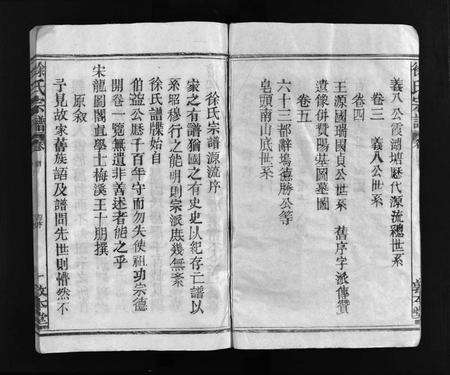 義八公霞湖墳歷代源流總世系
卷三　義八公世系
卷四
王源國瑞國貞公世系　舊序字派傳贊
遺像併贊陽基圖墓圖
卷五
六十三都辭塢德勝公等
皂頭南山底世系
徐氏宗譜源流序
家之有譜猶國之有史史以紀存亡譜以
系昭穆行之能明則宗派庶幾無紊
徐氏譜牒始自
伯益公歷千百年守而勿失使祖功宗德
開卷一覽無遺非善述者能之乎
宋龍圖閣直學士梅溪王十朋撰
原敘
予見故家舊族詔及譜問先世則懵然不
徐氏宗譜 卷
敦本堂